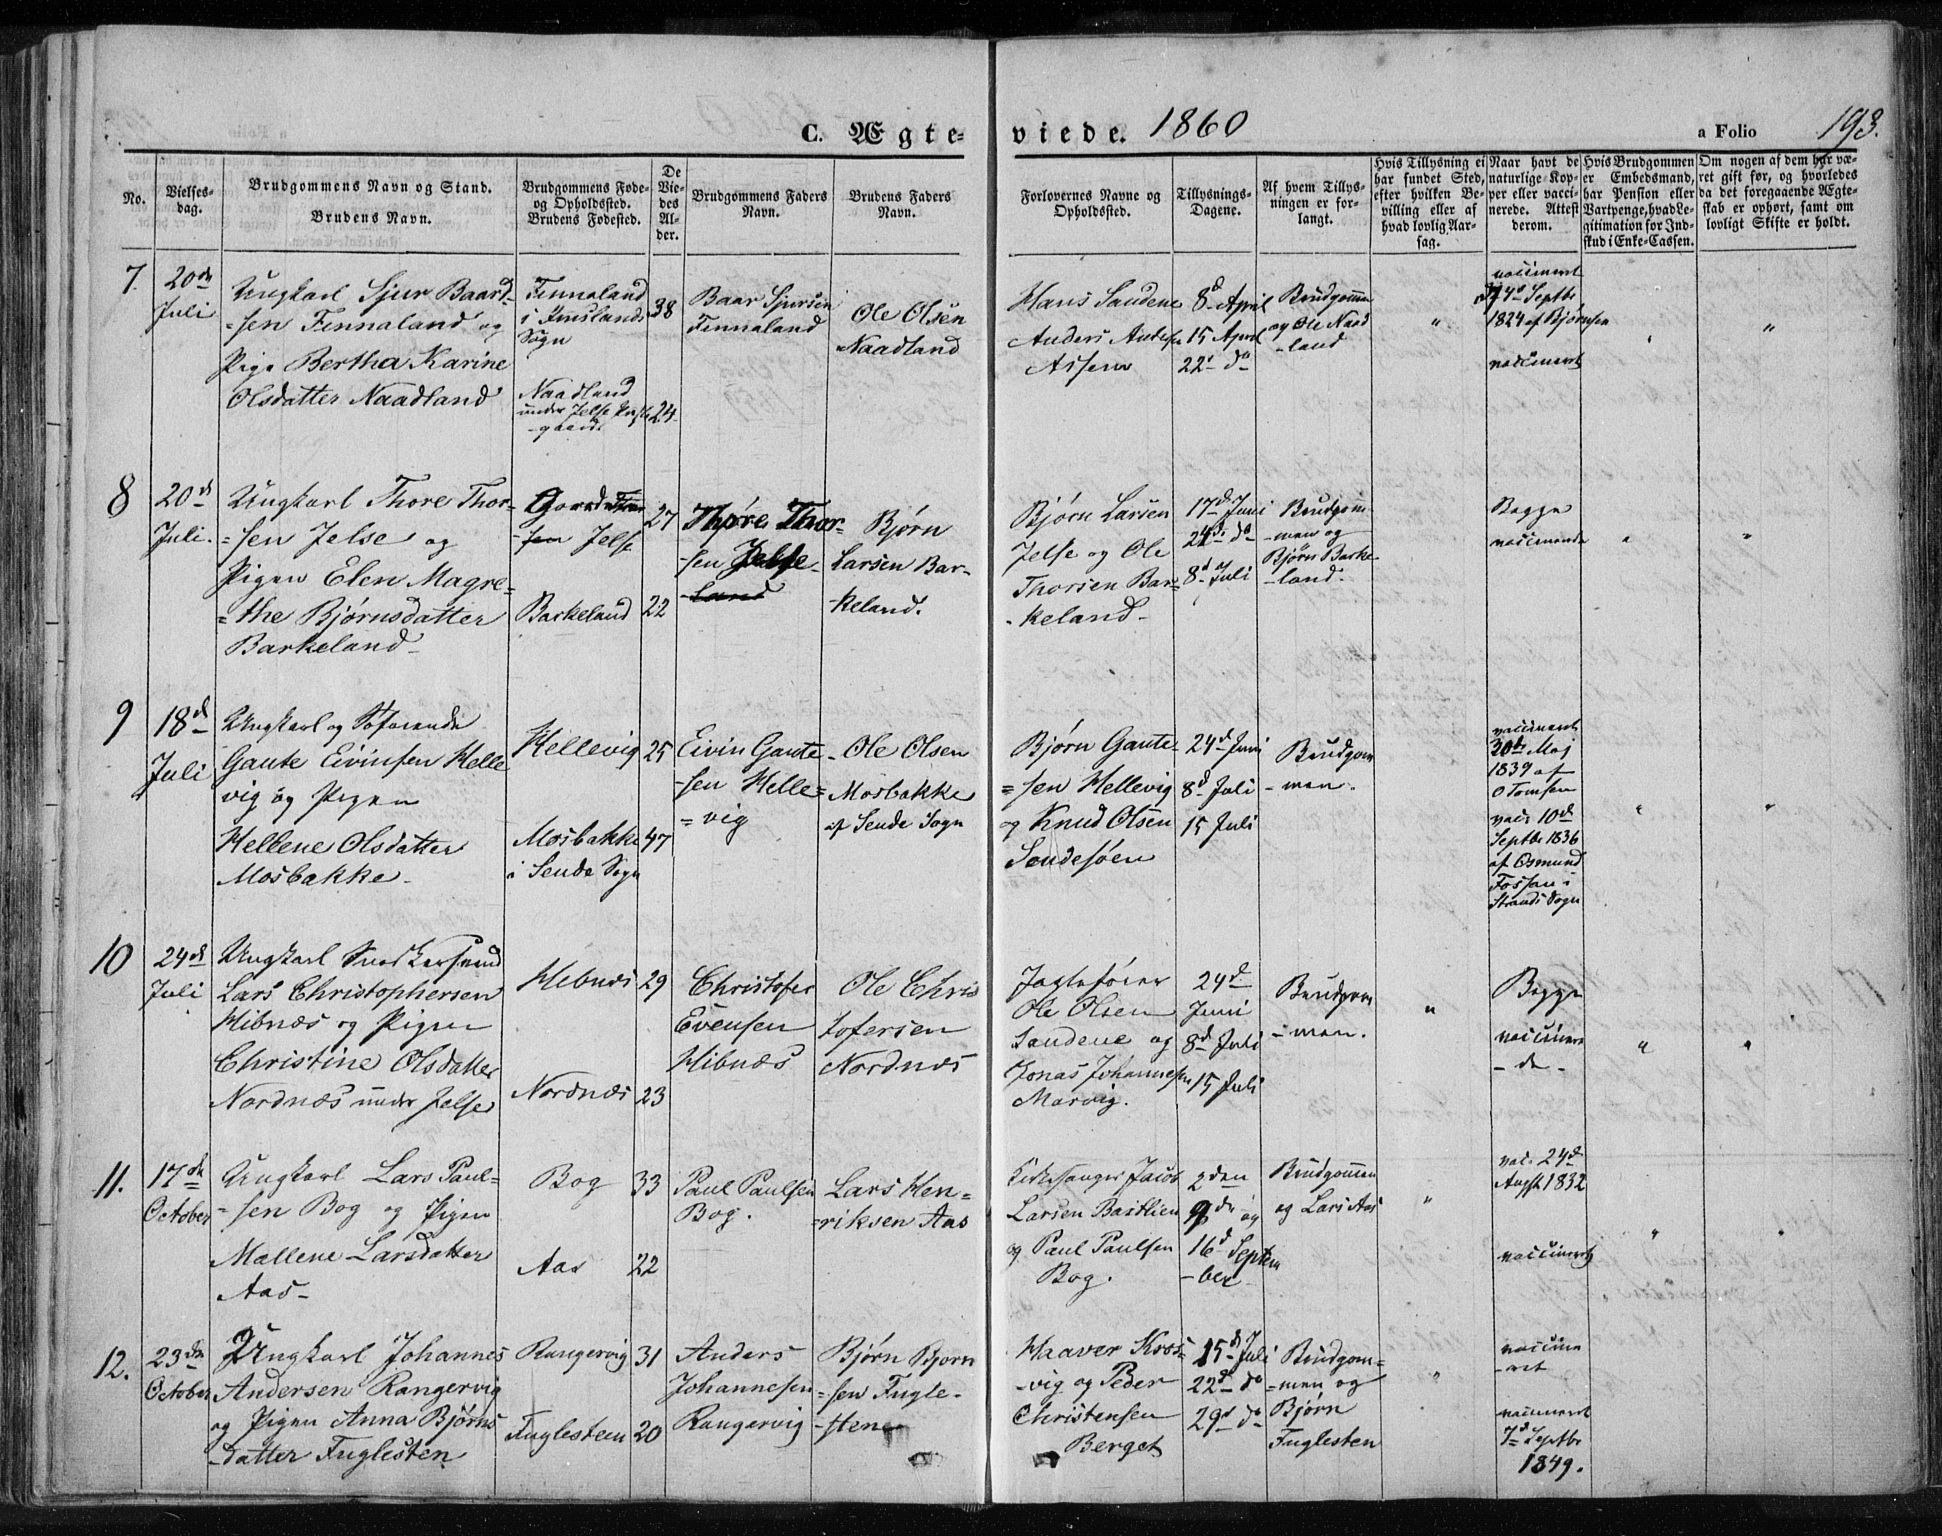 C. Ægte-
viede. 1860
a Folio 193.
No.
Vielses-
dag.
Brudgommens Navn og Stand.
Brudens Navn.
Brudgommens Føde-
og Opholdssted.
Brudens Fødested.
De
Vie-
des
Al-
der.
Brudgommens Faders
Navn.
Brudens Faders
Navn.
Forlovernes Navne og
Opholdssted.
Tillysnings-
Dagene.
Af hvem Tillys-
ningen er for-
langt.
Hvis Tillysning ei
har fundet Sted,
efter hvilken Be-
villing eller af
hvad lovlig Aar-
sag.
Naar havt de
naturlige Kop-
per eller vacci-
nerede. Attest
derom.
Hvis Brudgommen
er Embedsmand,
har Pension eller
Vartpenge, hvad Le-
gitimation for Ind-
skud i Enke-Cassen.
Om nogen af dem har væ-
ret gift før, og hvorledes
da det foregaaende Ægte-
skab er ophørt, samt om
lovligt Skifte er holdt.
7.
20de
Juli
Ungkarl Sjur Baard-
=sen Finnaland og
Pige Bertha Karine
Olsdatter Naadland
Finnaland
i Imslands
Sogn
Naadland
under Jelse Præste
-gaard
38
24
Baar Sjursen
Finnaland
Ole Olsen
Naadland
Hans Sandene
Anders
8d April
15 April
22d do
Brudgommen
og Ole Naad
-land
"
vaccineret
Septbr
1824 af Bjørnsen
vaccineret
"
"
8
20de
Juli.
Ungkarl Thore Thor-
=sen Jelse og
Pigen Elen Magre=
=the Bjørnsdatter
Barkeland
Jelse
Barkeland
27
22
Thore Thor-
-sen Jelse
-land
Bjørn
Larsen Bar-
-keland.
Bjørn Larsen
Jelse og Ole
Thorsen Bar-
-keland-
17d Juni
24d do
8d Juli
Brudgom-
-men og
Bjørn Barke-
-land.
Begge
vaccinerede
"
"
9
18de
Juli
Ungkarl og Søfarende
Gaute Eivinsen Helle
vig og Pigen
Hellene Olsdatter
Mosbakke
Hellevig
Mosbakke
i Sende Sogn
25
47
Eivin Gaute-
-sen Helle=
=vig
Ole Olsen
Mosbakke
af Sende Sogn
Bjørn Gaute-
=sen Hellevig
og Knud Olsen
Sandesøen
24d Juni
8d Juli
15 Juli
Brudgom
-men.
vaccineret
30de Maj
1839 af
O Tomsen
vacc 10de
Septbr 1836
af Osmund
Fossan i
Strands Sogn
"
"
10
24de
Juli
Ungkarl
Lars Christophersen
Hibnæs og Pigen
Christine Olsdatter
Nordnæs under Jelse
Hebnæs
Nordnæs
29
23
Christofer
Evensen
Hibnæs
Ole Chris
tofersen
Nordnæs
Ole Olsen
Sandene og
Jonas Johannesen
Marvig.
24d
Juni
8d Juli
15 Juli
Brudgom
-men.
"
Begge
vaccinere
-de-
"
"
11.
17de
October
Ungkarl Lars Paul=
-sen Bog og Pigen
Mallene Larsdatter
Aas-
Bog
Aas
33
22
Paul Paulsen
Bog.
Lars Hen-
=riksen Aas
Kirkesanger Jacob
Larsen Bastlien
og Paul Paulsen
Bog.
2den
9de og
16d Septem
-ber
Brudgommen
og Lars Aas
"
vac. 24de
Augst 1832
vaccineret
"
"
12.
23de
October
Ungkarl Johannes
Andersen Rangervig
og Pigen Anna Bjørns
-datter Fuglesten
Rangervig
Fuglesteen
31
20
Anders
Johannesen
Rangervig
Bjørn Bjorn
=sen Fugle-
-sten
Haaver Kros-
-vig og Peder
Christensen
Berget
15d Juli
22d do
29d do
Brudgom=
=men og
Bjørn
Fuglesten
"
vaccine
-ret
vaccineret
7d Septbr
1849.